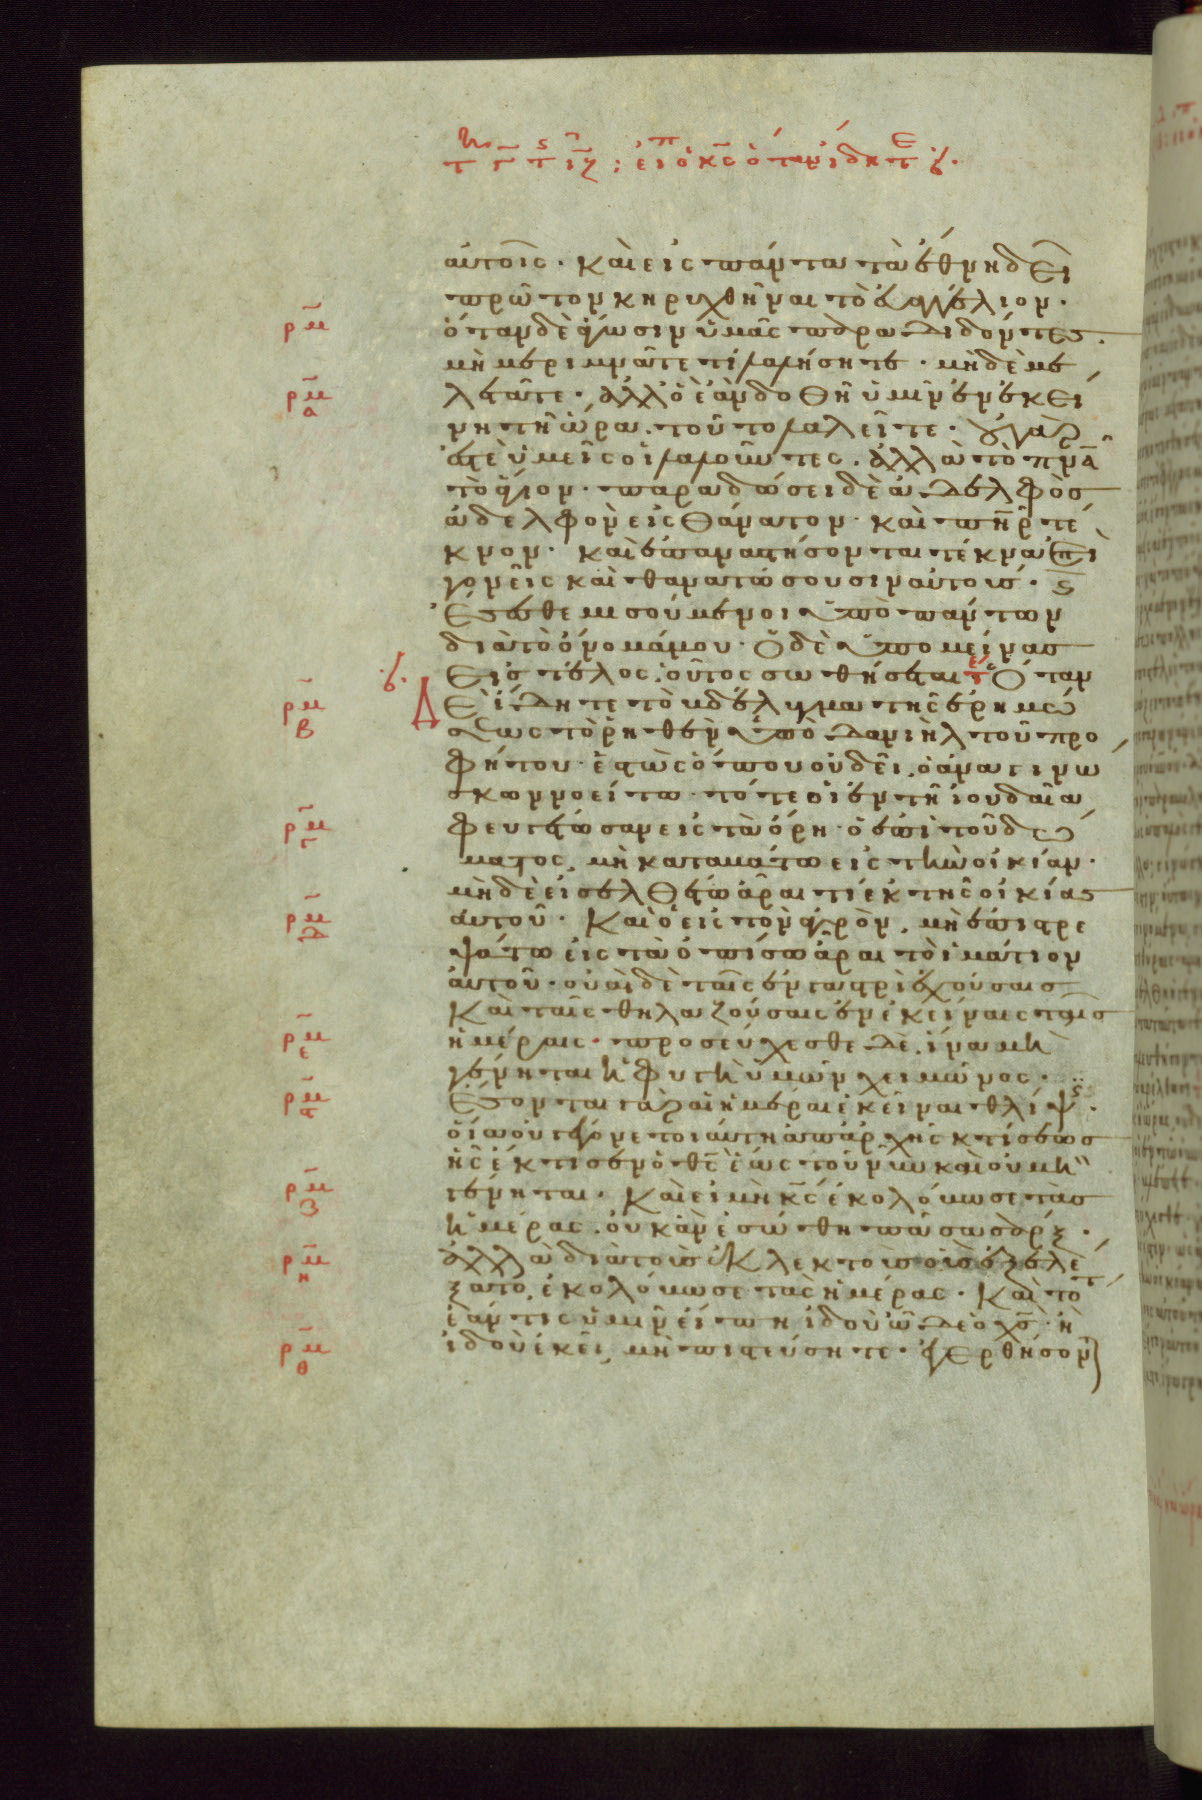 αὐτοῖς· καὶ εἰς πάντα τὰ ἔθνη δεῖ
πρῶτον κηρυχθῆναι τὸ εὐαγγέλιον·
ρμ ὅταν δὲ ἄγωσιν ὑμᾶς παραδιδόντες·
μὴ μεριμνᾶτε τί λαλήσητε· μηδὲ με
ρμα λετᾶτε· ἀλλ ὃ ἐὰν δοθῆ ὑμῖν ἐν ἐκεί
νη τῆ ὥρα· τοῦτο λαλεῖτε· οὐ γὰρ
ἐστὲ ὑμεῖς οἱ λαλοῦντες· ἀλλὰ τὸ πνα
τὸ ἅγιον· παραδώσει δὲ ἀδελφὸς
ἀδελφὸν εἰς θάνατον· καὶ πηρ τέ
κνον· καὶ ἐπαναστήσονται τέκνα ἐπὶ
γονεῖς καὶ θανατώσουσιν αὐτούς· κ
ἔσεσθε μισούμενοι ὑπὸ πάντων
διὰ τὸ ὄνομά μου· ὁ δὲ ὑπομείνας
εἰς τέλος, οὗτος σωθήσεται· ὅταν
ρμβ δὲ ἴδητε τὸ βδέλυγμα τῆς ἐρημώ
σεως τὸ ῥηθὲν ὑπὸ δανιὴλ τοῦ προ
φήτου· ἑστὼς ὅπου οὐ δεῖ, ὁ ἀναγινώ
σκων νοείτω· τότε οἱ ἐν τῆ ἰουδαία
ρμγ φευγέτωσαν εἰς τὰ ὄρη· ὁ ἐπὶ τοῦ δώ
ματος, μὴ καταβάτω εἰς τὴν οἰκίαν·
μηδὲ εἰσελθέτω ἆραι τί ἐκ τῆς οἰκίας
ρμδ αὐτοῦ· καὶ ὁ εἰς τὸν ἀγρὸν, μὴ ἐπιστρε
ψάτω εἰς τὰ ὀπίσω ἆραι τὸ ἱμάτιον
αὐτοῦ· οὐαὶ δὲ ταῖς ἐν γαστρὶ ἐχούσαις
καὶ ταῖς θηλαζούσαις ἐν ἐκείναις ταῖς
ρμε ἡμέραις· προσεύχεσθε δὲ, ἵνα μὴ
γένηται ἡ φυγὴ ὑμῶν χειμῶνος·
ρμϛ ἔσονται γὰρ αἱ ἡμέραι ἐκεῖναι θλίψ·
οἵα οὐ γέγονε τοιαύτη ἀπ ἀρχῆς κτίσεως
ἧς ἔκτισεν ὁ θς ἕως τοῦ νῦν καὶ οὐ μὴ
ρμζ γένηται· καὶ εἰ μὴ κς ἐκολόβωσε τὰς
ἡμέρας· οὐκ ἂν ἐσώθη πᾶσα σάρξ·
ρμη ἀλλὰ διὰ τοὺς ἐκλεκτοὺς οὓς ἐξελέ
ξατο, ἐκολόβωσε τὰς ἡμέρας· καὶ τότ
ἐάν τις ὑμῖν εἴπη ἰδοὺ ὧδε ὁ χς· ἢ
ρμθ ἰδοὺ ἐκεῖ, μὴ πιστεύσητε· ἐγερθήσον